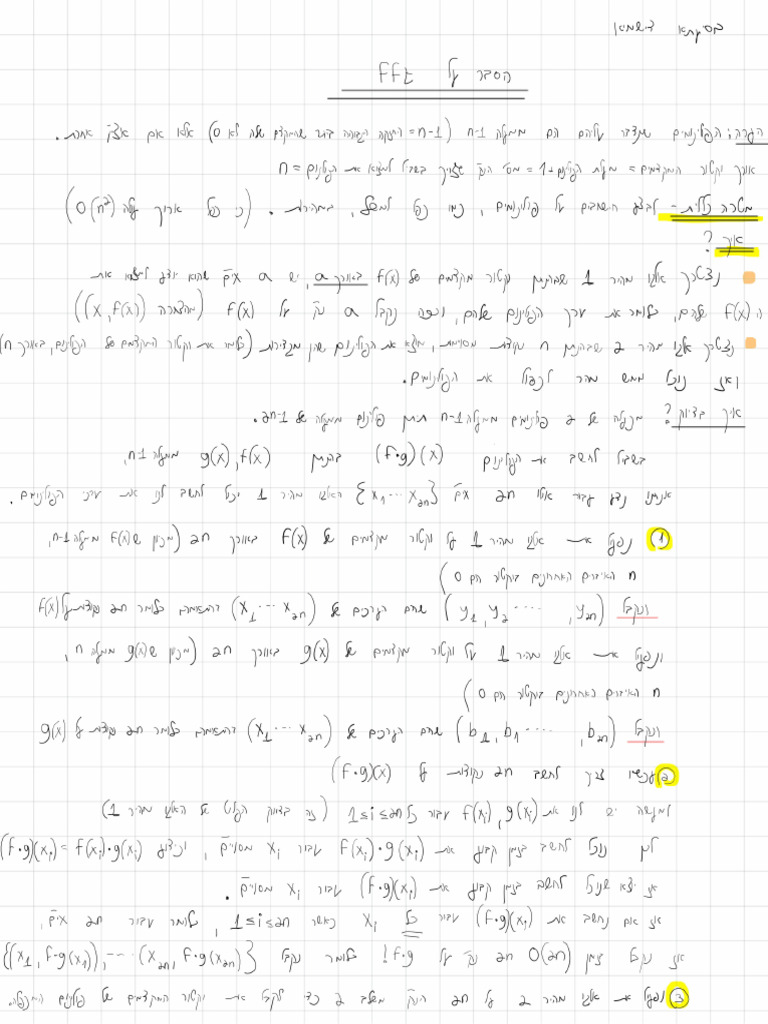 בסיעתא דשמיא
הסבר על FFt
הערה: הפולינומים שנדבר עליהם הם ממעלה n-1 (n-1 = החזקה הגבוהה ביותר שהמקדם שלה לא 0) אלא אם אציין אחרת.
אורך וקטור המקדמים = מעלת הפולינום+1 = מס' הנק' שצריך בשביל למצוא את הפולינום = n
מטרה כללית - לבצע חישובים על פולינומים, כמו כפל למשל, במהירות. (כי כפל ארוך עולה O(n²))
איך?
נצטרך אלגו מהיר 1 שבהינתן וקטור מקדמים של f(x) באורך a, ויש a איקסים שהוא יודע למצוא את
ה f(x) שלהם, כלומר את ערך הפולינום שלהם, ונקבל a נק' על f(x) (מהצורה (x, f(x)))
נצטרך אלגו מהיר 2 שבהינתן n נקודות מסוימות, מוצא את הפולינום שהן מגדירות (כלומר את וקטור המקדמים של הפולינום, באורך n)
ואז נוכל ממש מהר לכפול את הפולינומים.
איך בדיוק? מכפלה של 2 פולינומים ממעלה n-1 תיתן פולינום ממעלה 2n-1.
בשביל לחשב את הפולינום (f·g)(x) בהינתן g(x), f(x) ממעלה n-1,
אנחנו נדע עבור אילו 2n איקסים {x₁ ··· x₂ₙ} האלגו מהיר 1 יכול לחשב לנו את ערכי הפולינומים.
① נפעיל את אלגו מהיר 1 על וקטור מקדמים של f(x) באורך 2n (מכיוון ש f(x) ממעלה n-1,
n האיברים האחרונים בוקטור הם 0)
ונקבל (y₁, y₂ ····, y₂ₙ) שהם הערכים של (x₁ ··· x₂ₙ) בהתאמה כלומר 2n נקודות על f(x)
ונפעיל את אלגו מהיר 1 על וקטור מקדמים של g(x) באורך 2n (מכיוון ש g(x) ממעלה n,
n האיברים האחרונים בוקטור הם 0)
ונקבל (b₁, b₁ ····, b₂ₙ) שהם הערכים של (x₁ ··· x₂ₙ) בהתאמה כלומר 2n נקודות על g(x)
② עכשיו צריך לחשב 2n נקודות על (f·g)(x)
למעשה יש לנו את f(xᵢ), g(xᵢ) עבור כל 1≤i≤2n (זה בדיוק הפלט של האלגו מהיר 1)
לכן נוכל לחשב בזמן קבוע את f(xᵢ)·g(xᵢ) עבור xᵢ מסויים, וכידוע (f·g)(xᵢ) = f(xᵢ)·g(xᵢ)
אז יצא שנוכל לחשב בזמן קבוע את (f·g)(xᵢ) עבור xᵢ מסויים.
אז אם נחשב את (f·g)(xᵢ) עבור כל xᵢ כאשר 1≤i≤2n, כלומר עבור 2n איקסים,
אז נקבל בזמן O(2n) 2n נק' על f·g! כלומר נקבל {(x₁, f·g(x₁)), ··· (x₂ₙ, f·g(x₂ₙ)}
③ נפעיל את אלגו מהיר 2 על 2n הנק' משלב 2 כדי לקבל את וקטור המקדמים של פולינום המכפלה.